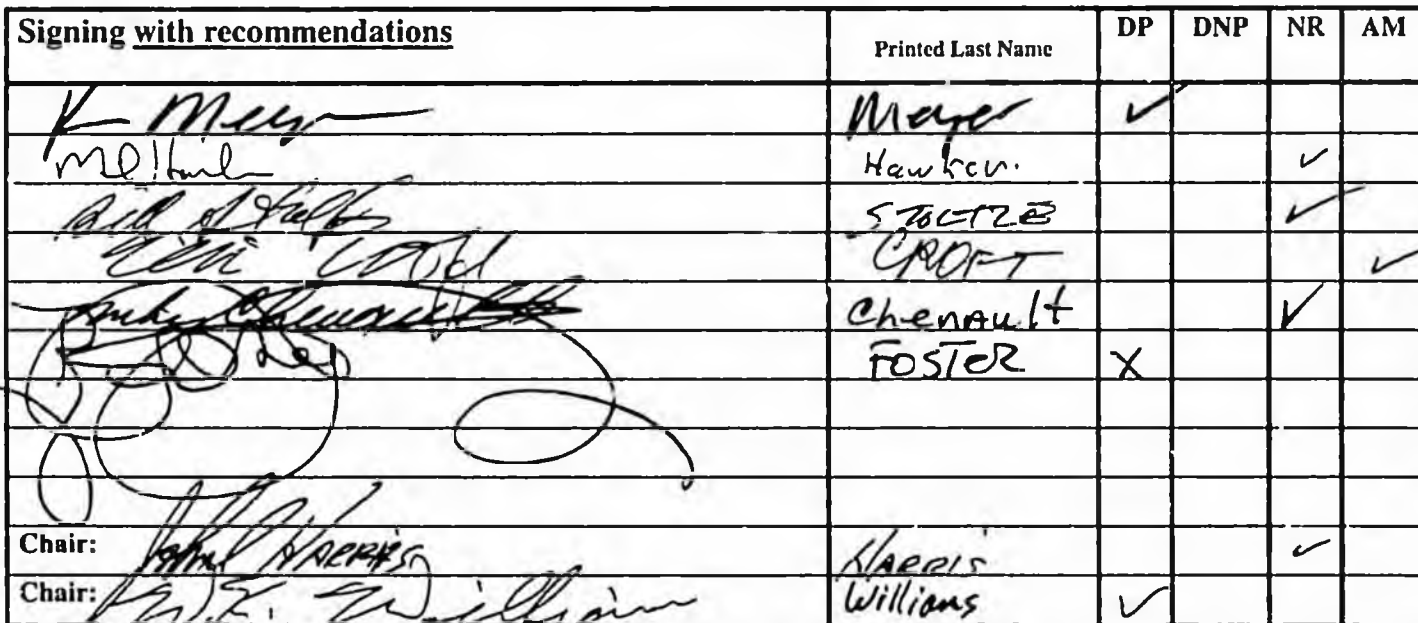 Signing with recommendations Printed Last Name DP DNP NR AM
K Meyer Meyer ✓
Hawken. ✓
STOLTZE ✓
CROFT ✓
Chenault Chenault ✓
FOSTER X
Chair: John Harris HARRIS ✓
Chair: W.K. William Willians ✓